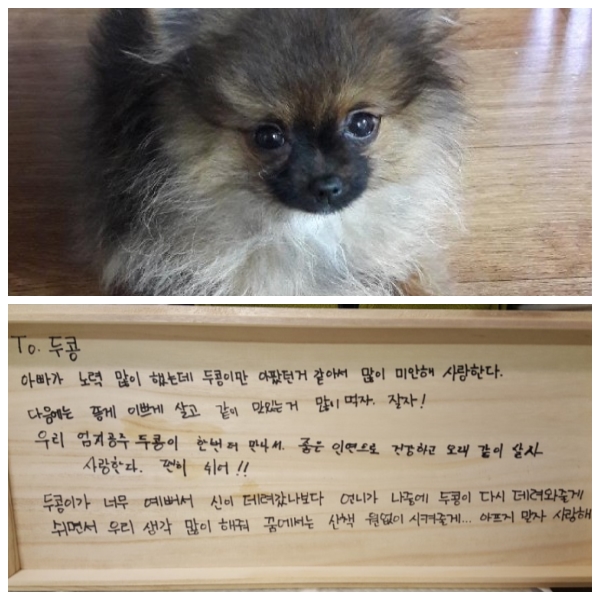 To. 두콩
아빠가 노력 많이 했는데 두콩이만 아팠던거 같아서 많이 미안해 사랑한다.
다음에는 좋게 이쁘게 살고 같이 맛있는거 많이 먹자. 잘자!
우리 엄지공주 두콩이 한번 더 만나서. 좋은 인연으로 건강하고 오래 같이 살자
사랑한다. 편히 쉬어!!
두콩이가 너무 예뻐서 신이 데려갔나보다 언니가 나중에 두콩이 다시 데려와줄게
쉬면서 우리 생각 많이 해줘 꿈에서는 산책 시켜줄게... 아프지 말자 사랑해